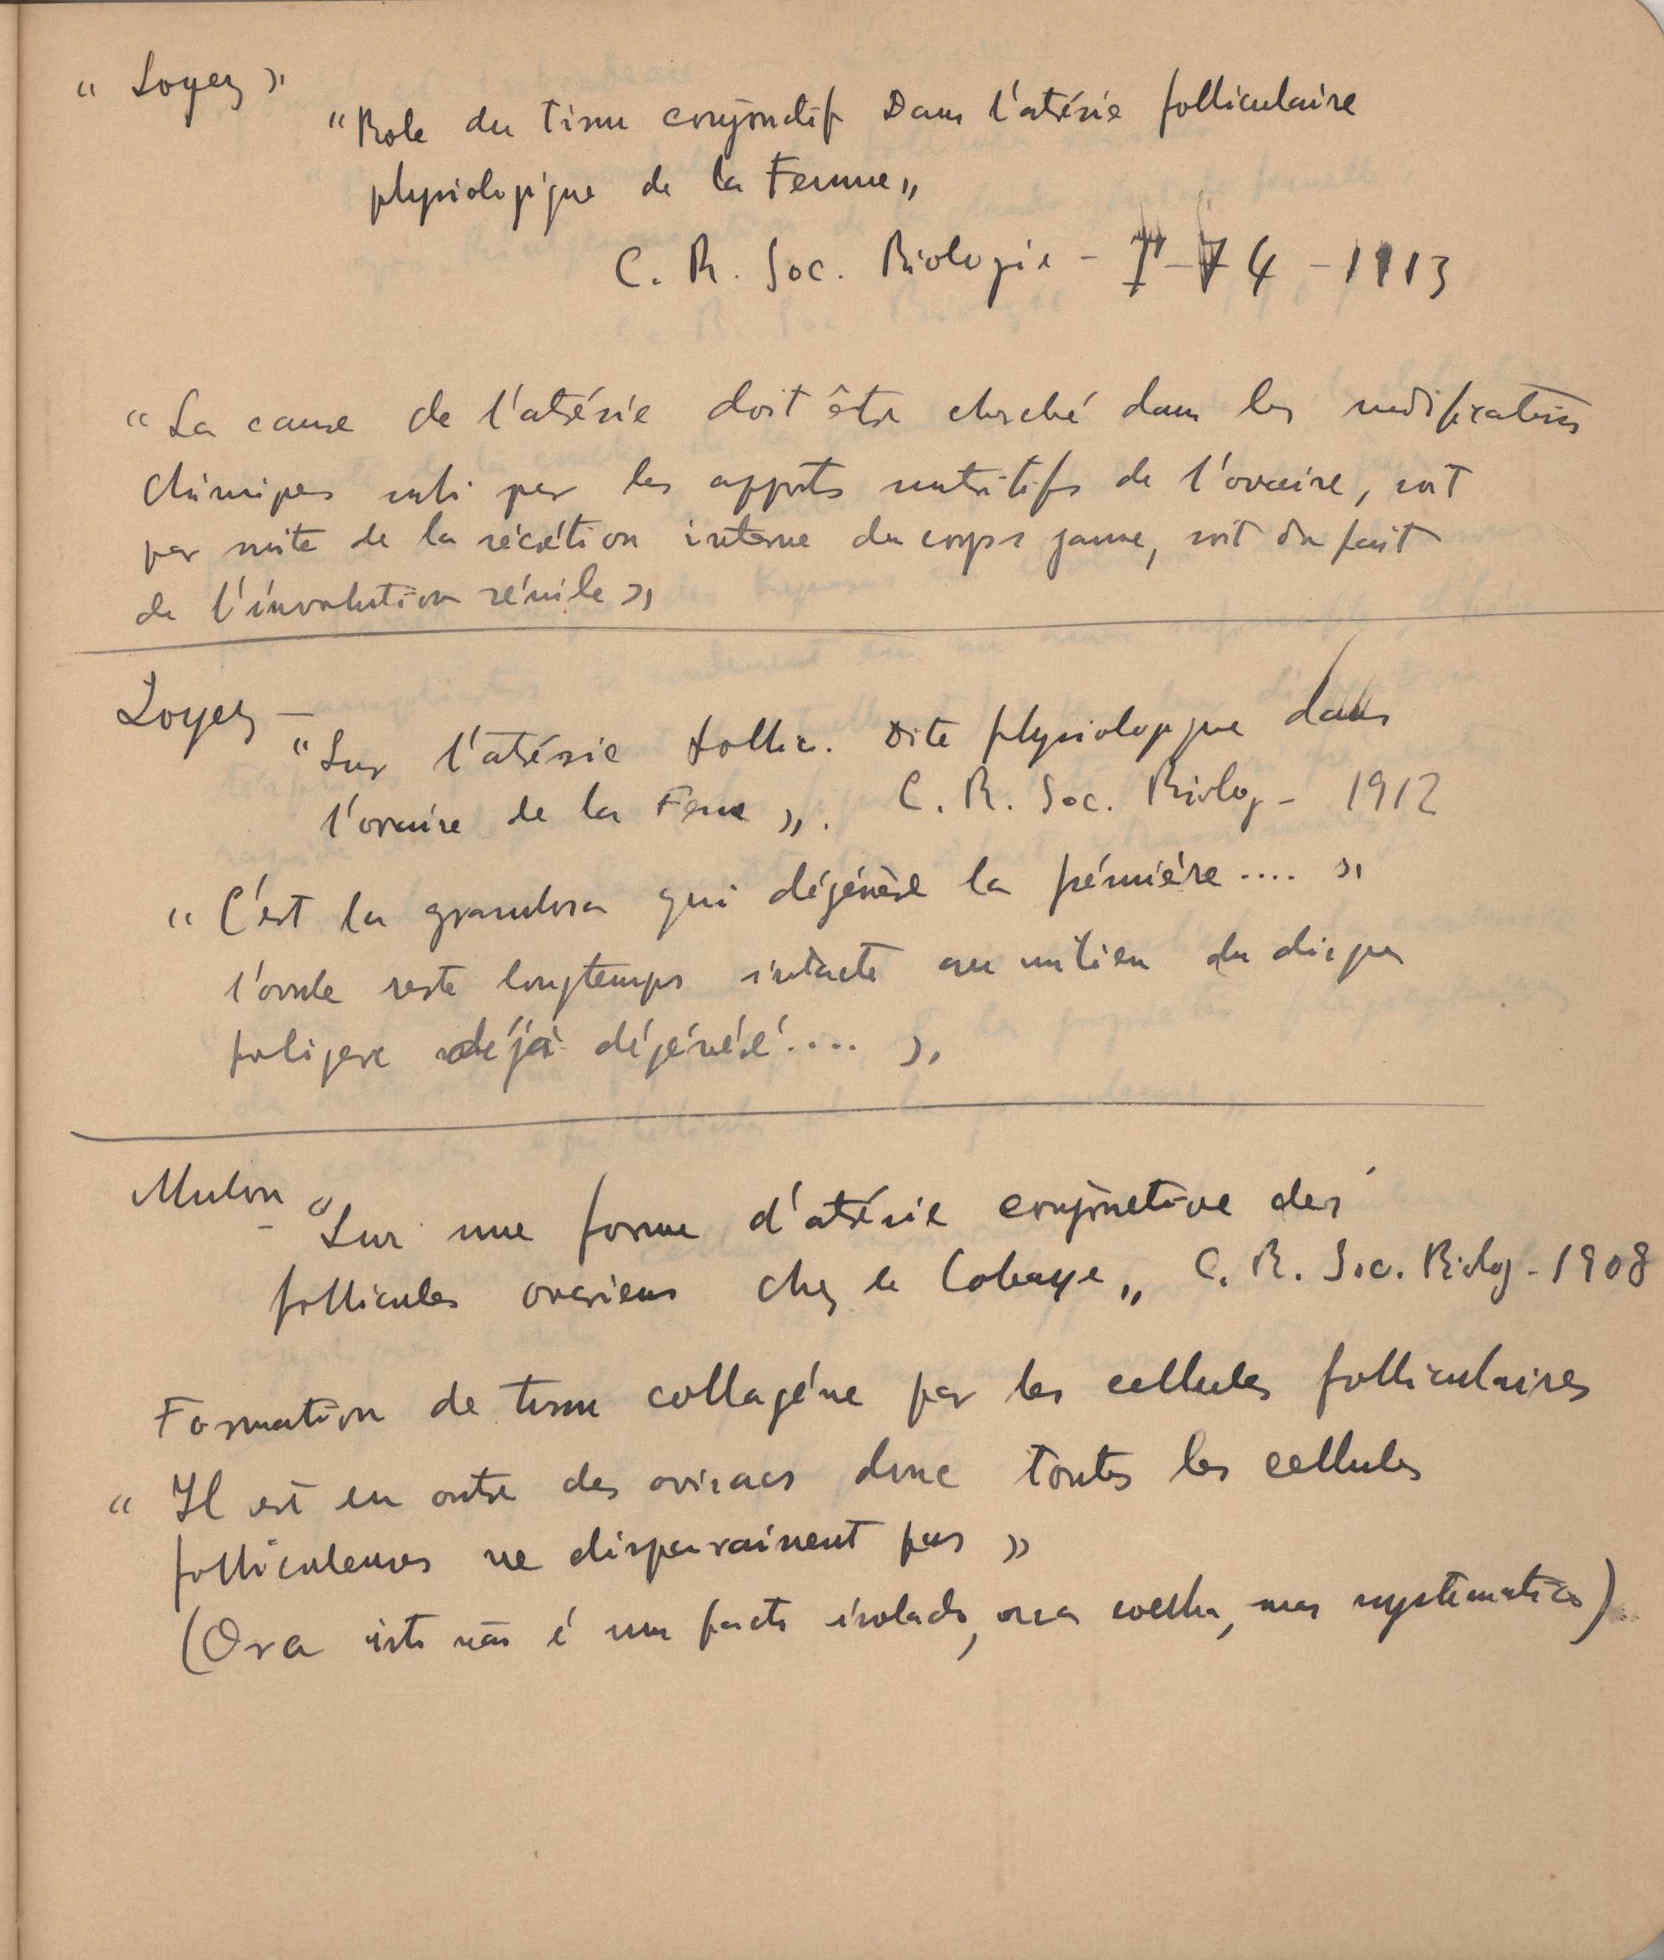 « Loyez »
"Role du tissu conjonctif Dans l'atrésie folliculaire
physiologique de la Femme"
C. R. Soc. Biologie - T-74 - 1913
"La cause de l'atrésie doit être cherché dans les modifications
chimiques subi par les apports nutritifs de l'ovaire, soit
par suite de la sécrétion interne du corps jaune, soit du fait
de l'involution sénile »
Loyez -
"Sur l'atrésie follic. Dite physiologique dans
l'ovaire de la Feme ". C. R. Soc. Biolog - 1912
« C'est la granulosa qui dégénère la prémière .... »
l'ovule reste longtemps intacte au milieu du disque
poligere déjà dégénéré .... »
Mulon - "Sur une forme d'atrésie conjonctive des
follicules ovariens chez le Cobaye" C. R. Soc. Biolog - 1908
Formation de tissu collagéne par les cellules folliculaires
« Il est en outre des ovisacs dont toutes les cellules
folliculeuses ne disparaissent pas »
(Ora isto não é um facto isolado, na coelha, mas systematico)